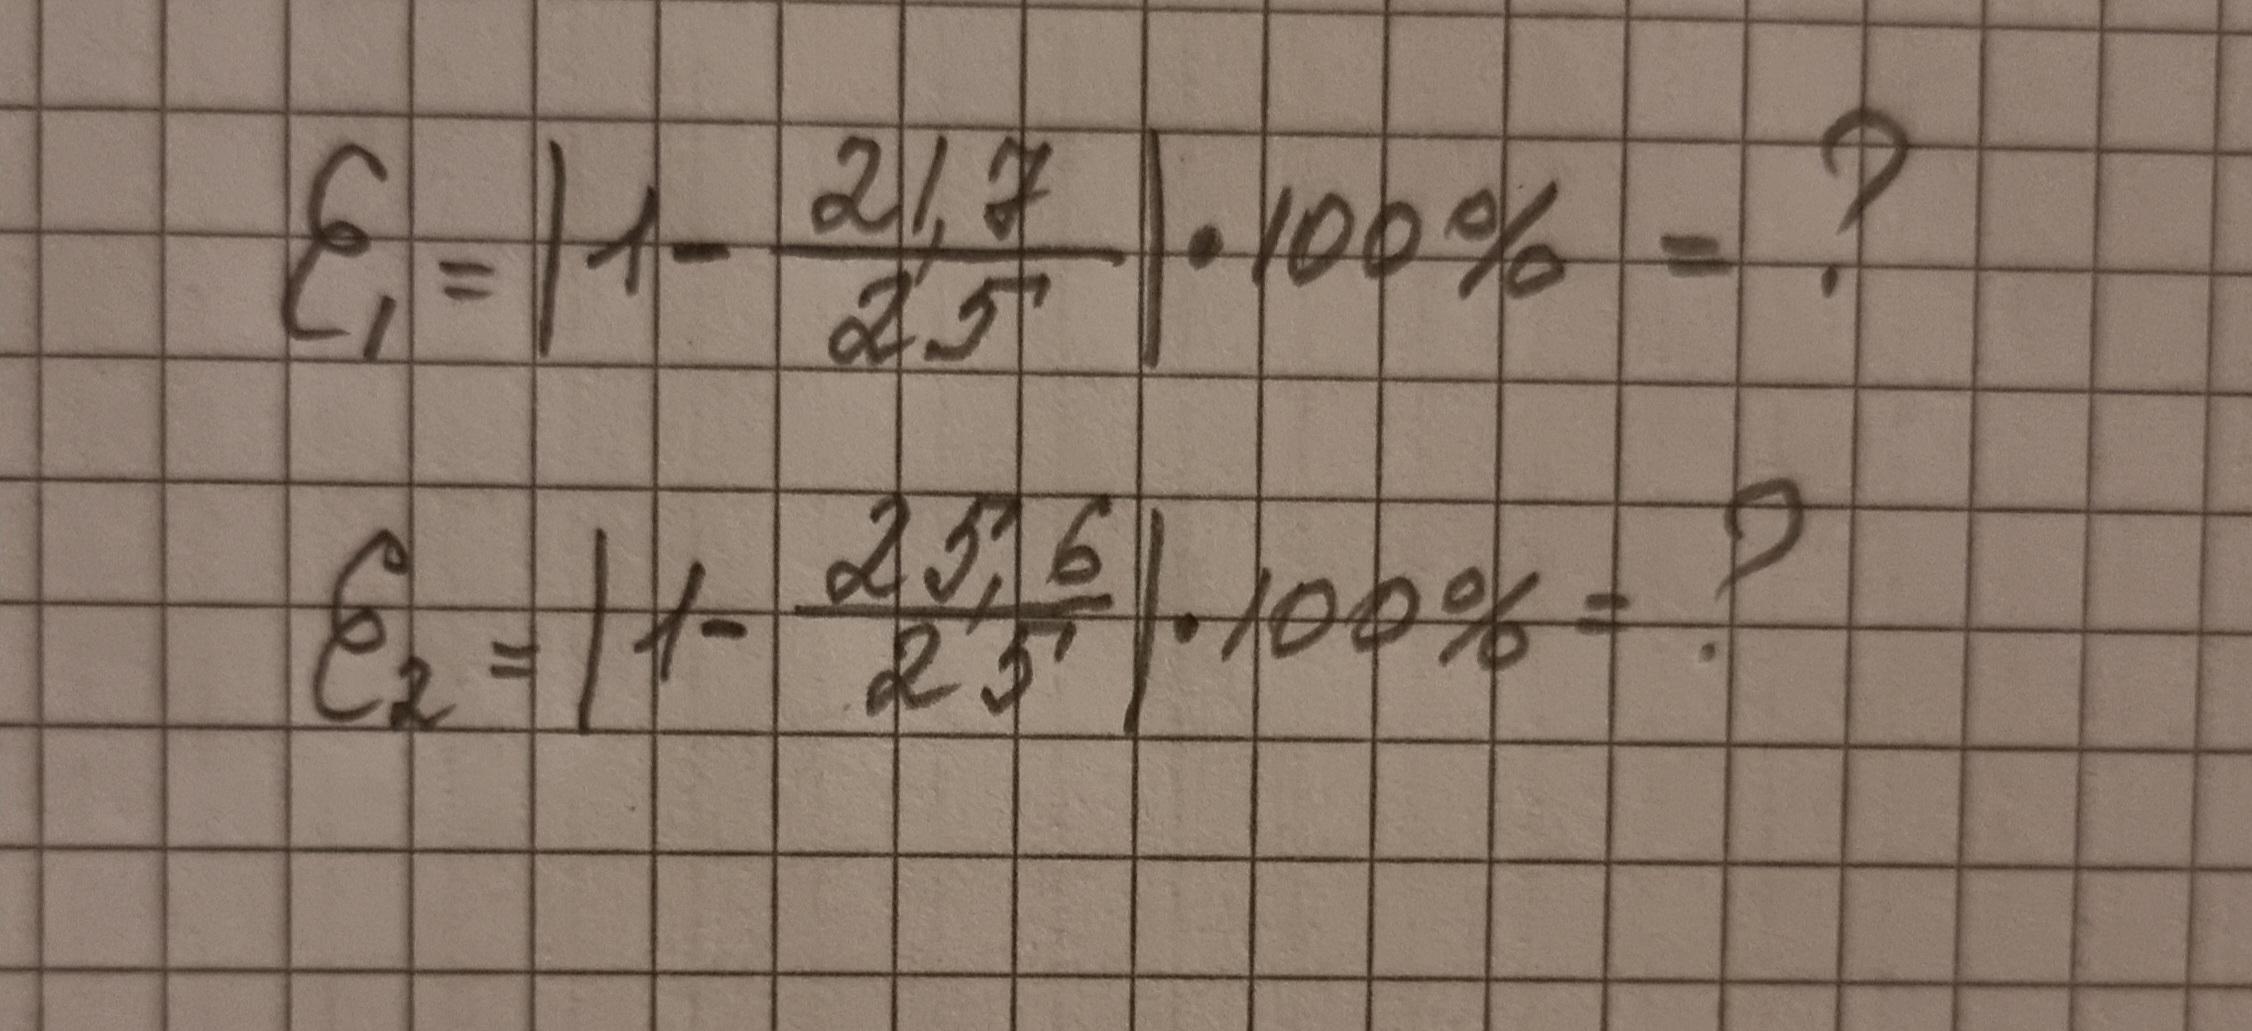 ℰ₁ = |1 - 21,7/25| · 100% = ?
ℰ₂ = |1 - 25,6/25| · 100% = ?